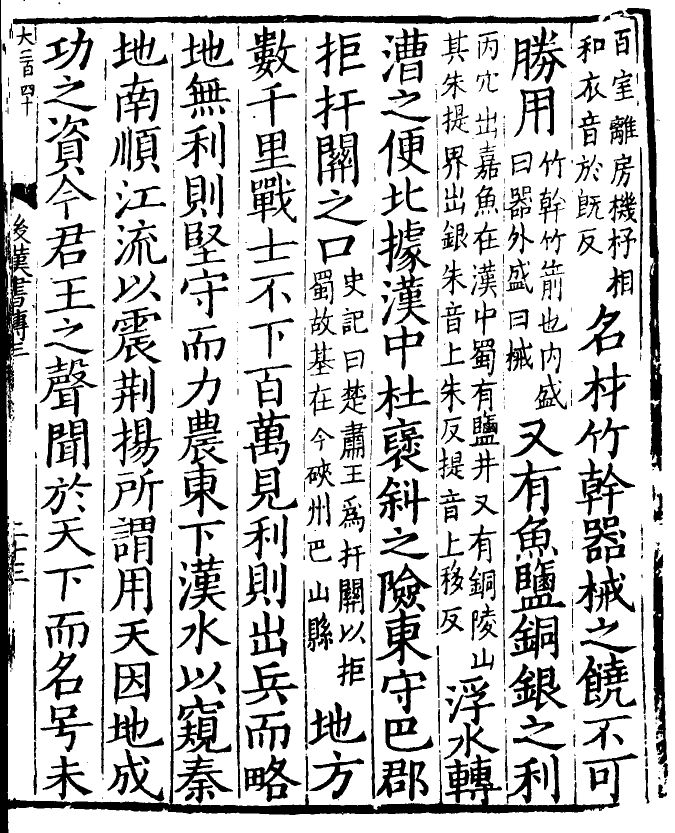 百室離房機杼相
和衣音於既反
名材竹幹器械之饒不可
勝用
竹幹竹箭也内盛
曰器外盛曰械
又有魚鹽銅銀之利
丙穴出嘉魚在漢中蜀有鹽井又有銅陵山
其朱提界出銀朱音上朱反提音上移反
浮水轉
漕之便北據漢中杜褒斜之險東守巴郡
拒扞關之口
史記曰楚肅王爲扞關以拒
蜀故基在今硤州巴山縣
地方
數千里戰士不下百萬見利則出兵而略
地無利則堅守而力農東下漢水以窺秦
地南順江流以震荆揚所謂用天因地成
功之資今君王之聲聞於天下而名号未
後漢書傳三
二十三